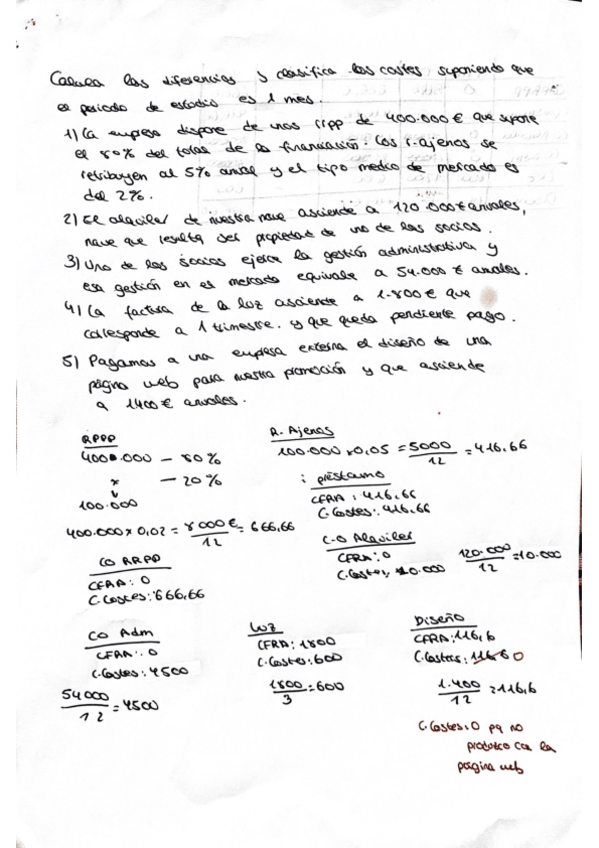 Calcula las diferencias y clasifica los costes suponiendo que
el periodo de estudio es 1 mes.
1) La empresa dispone de unos rrpp de 400.000 € que supone
el 80% del total de la financiación. Los r. ajenos se
retribuyen al 5% anual y el tipo medio de mercado es
del 2%.
2) El alquiler de nuestra nave asciende a 120.000€ anuales,
nave que resulta ser propiedad de uno de los socios.
3) Uno de los socios ejerce la gestión administrativa y
esa gestión en es mercado equivale a 54.000 € anuales.
4) La factura de la luz asciende a 1.800 € que
corresponde a 1 trimestre. y que queda pendiente pago.
5) Pagamos a una empresa externa el diseño de una
página web para nuestra promoción y que asciende
a 1400 € anuales.
RPPP
400.000 — 80%
x — 20%
100.000
400.000 x 0,02 = 8000€/12 = 666,66
CO RRPP
CFRA: 0
C. Costes: 666,66
R. Ajenos
100.000 x 0,05 = 5000/12 = 416,66
: préstamo
CFRA: 416,66
C. Costes: 416,66
C.O Alquiler
CFRA: 0
C. Costes: 10.000
120.000/12 = 10.000
CO Adm
CFRA: 0
C. Costes: 4500
54000/12 = 4500
LUZ
CFRA: 1800
C. Costes: 600
1800/3 = 600
Diseño
CFRA: 116,6
C. Costes: 116,6 0
1.400/12 = 116,6
C. Costes: 0 pq no
produzco con la
página web